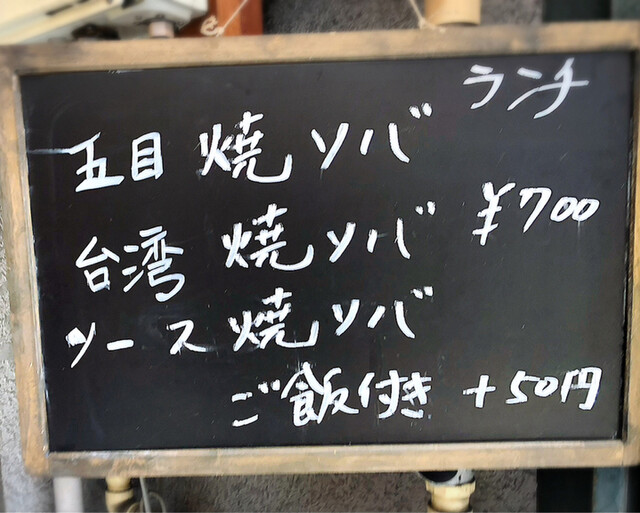 ランチ
五目 焼ソバ
台湾 焼ソバ ¥700
ソース焼ソバ
ご飯付き +50円